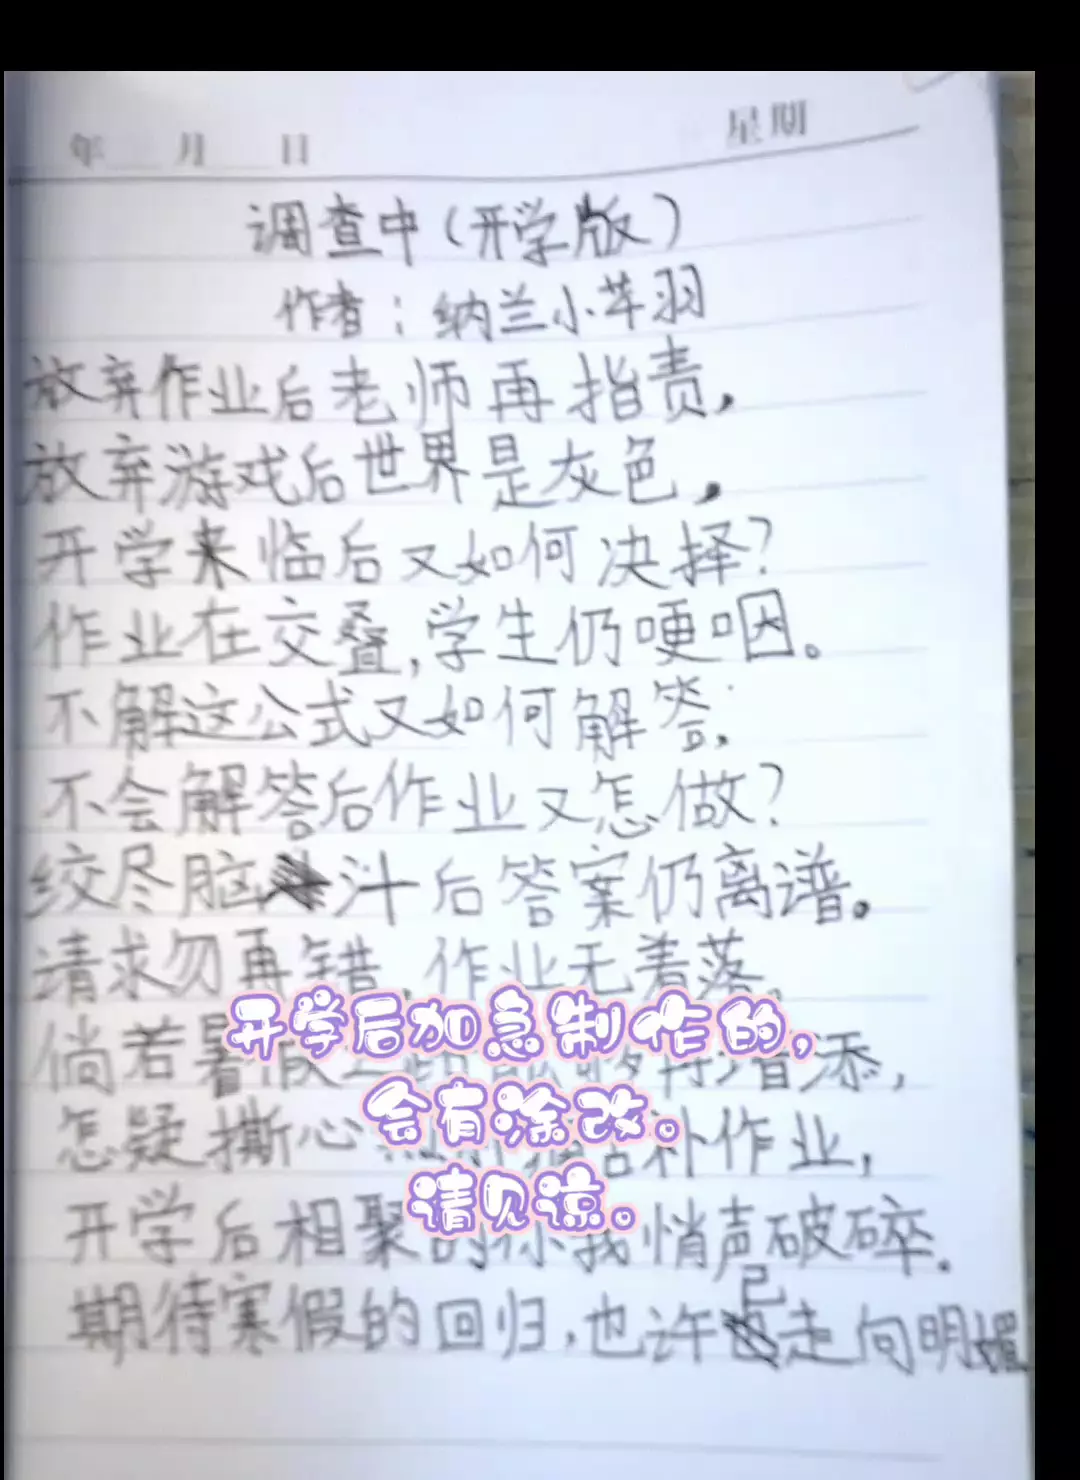 年 月 日 星期
调查中(开学版)
作者：纳兰小芊羽
放弃作业后老师再指责，
放弃游戏后世界是灰色，
开学来临后又如何决择？
作业在交叠，学生仍哽咽。
不解这公式又如何解答，
不会解答后作业又怎做？
绞尽脑汁后答案仍离谱。
请求勿再错，作业无着落，
倘若暑假 增添，
怎疑撕心 补作业，
开学后相聚的你我悄声破碎.
期待寒假的回归，也许已走向明媚
开学后加急制作的，
会有涂改。
请见谅。